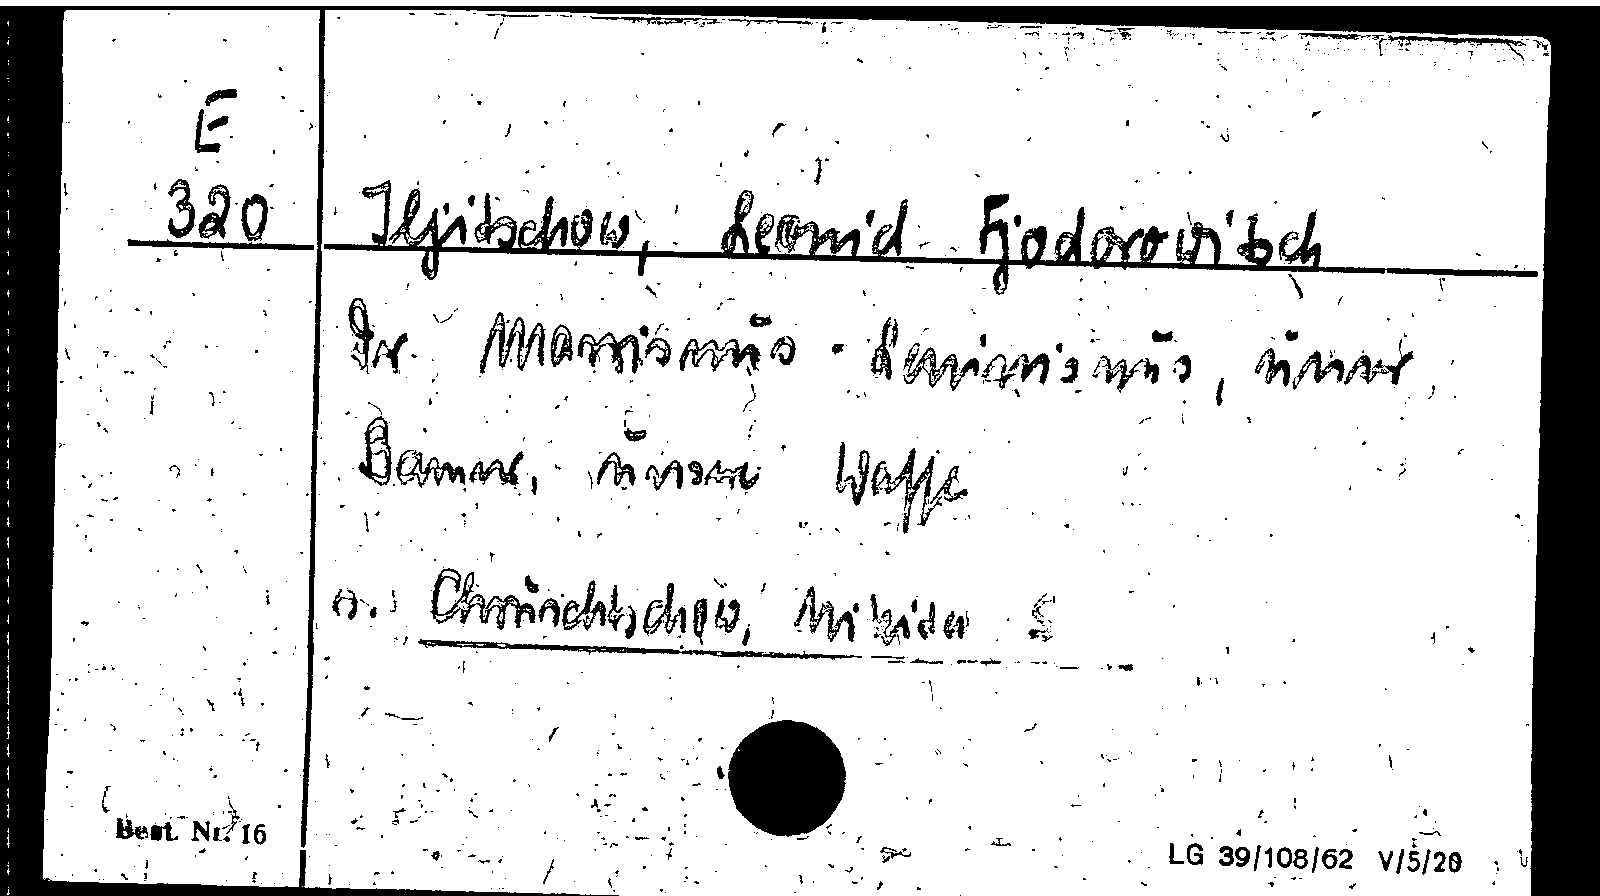 E
320
Iljitschow, Leonid Fjodorowitsch
Der Marxismus-Leninismus, unser
Banner, unsere Waffe
s. Chruschtschow, Nikita S
Best. Nr. 16
LG 39/108/62 V/5/20